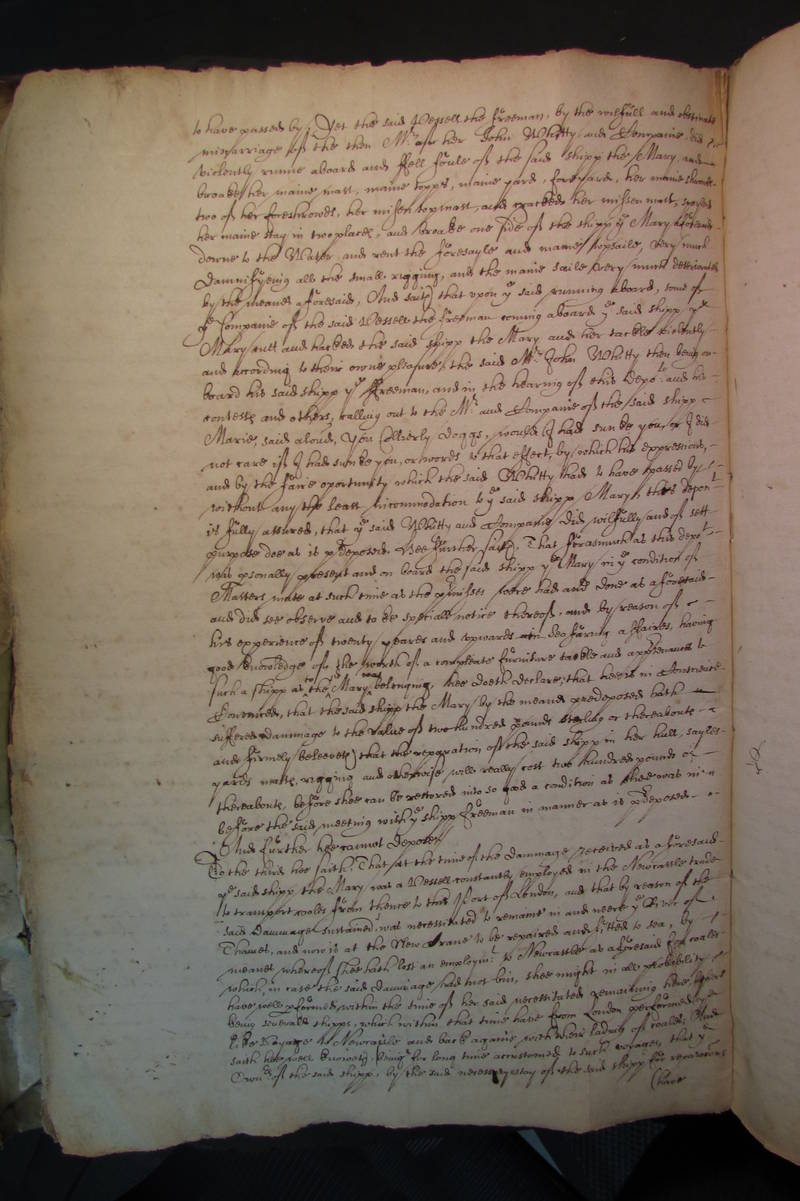 to have passed by, Yet the said Vessell the Freeman, by the wilfull and obstinate
miscarriage of the then Mr of her John Whitty and Companie did
violently runne aboard and fell foule of the said shipp the Mary, and
broake her maine mast, maine topps, maine yard, foreyard, her maine shrowds
two of her foreshrowds, her misen topmast, and cracked her missen mast, spoyled
her maine stay in two places, and breake one side of the shipp ye Mary
downe to the Water, and rent the foresayle and maine topsaile, very much
Damnifyeing all the small rigging, and the maine saile very much
by the meanes aforesaid, And saith that upon ye said running aboard, some of
ye Companie of the said Vessell the Freeman coming aboard ye said shipp ye
Mary cutt and hacked the said shipp the Mary and her tackle violently
and according to their owne pleasure, the said Mr John Whitty then being on
board his said shipp ye Freeman, and in the hearing of this Depot and his
contests and others, calling out to the Mr and Companie of the said shipp
Marie, said aloud, You Collierly Doggs, would I had sunke you, or I did
not care if I had sunke you, or words to that effect, by which his expressions,
and by the faire oportunity which the said Whitty had to have passed by
without any the least incommodation to ye said shipp Mary, this depont
is fully assured, that ye said Whitty and Companie did wilfully and of sett
purpose doe as is predeposed. Hee further saith, That forasmuch as this depot
was personally present and on board the said shipp ye Mary in ye condition of
Masters mate at such time as the premisses were had and done as aforesaid
and did see observe and to be speciall notice thereof, and by reason of
his experience of twenty yeares and upwards in seafaring affaires, having
good knowledge of the worth of a compleate furniture tackle and apptenances to
such a shipp as the Mary belonging, hee doeth declare, that hee is in Conscience
Convinced, that the said shipp the Mary by the meanes predeposed hath
suffered dammage to the value of two hundred pounds sterling or thereabouts
and firmely beleeveth that the reparation of the said shipp in her hull, sayles
yards masts, rigging and otherwise will really cost two hundred pounds or
thereabouts, before shee can be restored into so good a condition as shee was in
before the said meeting with ye shipp Freeman in manner as is predeposed.
And further hee cannot depose
To the third hee saith, That at the time of the dammage received as aforesaid
ye said shipp the Mary was a Vessell constantly employed in the Newcastle trade
to transport coales from thence to this Port of London, and that by reason of the
said Dammage sustained, was necessitated to remaine in and neere ye River of
Thames, and now is at the New Crane to be repaired and fitted to sea, by
meanes whereof shee hath lost an employmt to Newcastle as aforesaid for coales
which, in case the said Dammage had not bin, shee might in all probability
have well performed, within the time of her said necessitated remaining here, there
being severall shipps, which within that time have from London performed
like Voyage to Newcastle and back againe with their lading of coales, And
saith hee well knoweth, being for long time accustomed to such voyages, that ye
Ownrs of the said shipp, by the said necessary stay of the said shipp for reparations
have